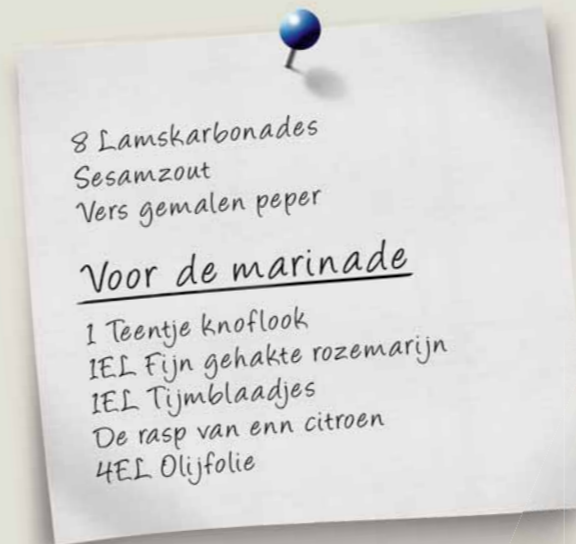 8 Lamskarbonades
Sesamzout
Vers gemalen peper
Voor de marinade
1 Teentje knoflook
1EL Fijn gehakte rozemarijn
1EL Tijmblaadjes
De rasp van enn citroen
4EL Olijfolie